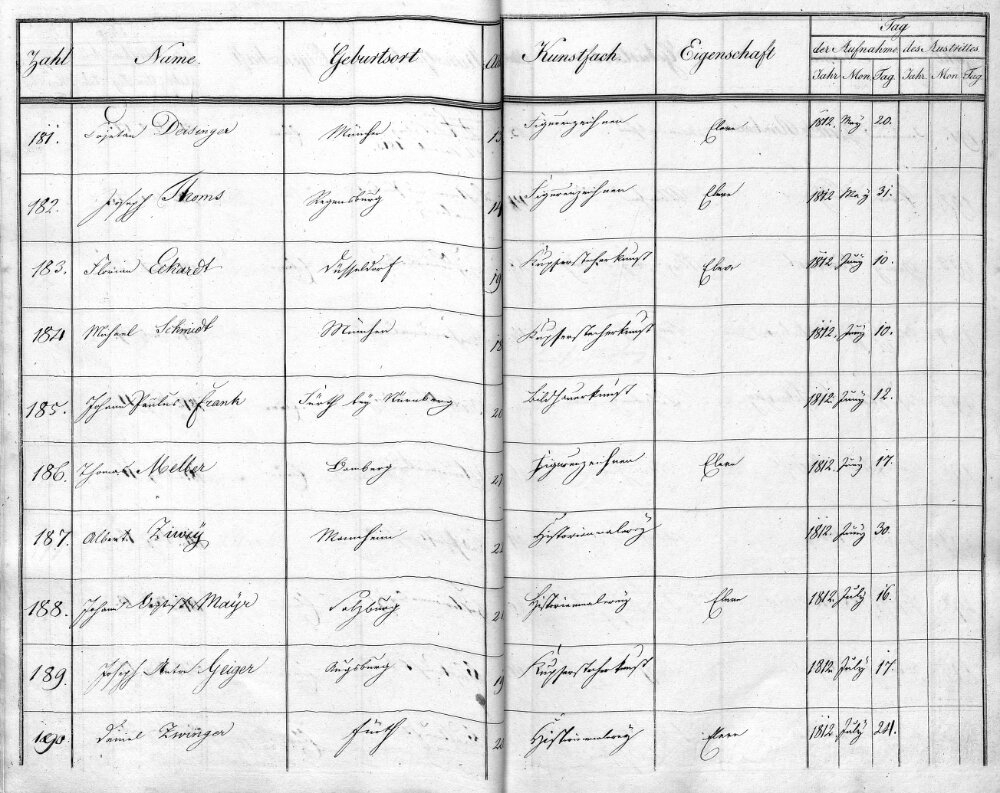 Tag
Zahl Name. Geburtsort Kunstfach. Eigenschaft der Aufnahme des Austrittes
Jahr Mon. Tag. Jahr. Mon Tag.
181. Deisinger München Figurenzeichnen Eleve 1812. May. 20.
182. Joseph Thoms Regensburg 14 Figurenzeichnen Eleve 1812 May 31.
183. Florian Eckardt Düsseldorf 19 Kupferstecherkunst Eleve 1812. Juny 10.
184 Michael Schmidt München 18 Kupferstecherkunst 1812. Juny 10.
185. Johann Paulus Frank Fürth bey Nürnberg 20 Bildhauerkunst 1812. Juny 12.
186. Thomas Meller Bamberg Figurenzeichnen Eleve 1812. Juny 17.
187. Albert Mannheim Historienmalerey 1812. Juny 30.
188. Johann Baptist Mayr Salzburg Historienmalerey Eleve 1812. July 16.
189. Joseph Anton Geiger Augsburg 19 Kupferstecherkunst 1812. July 17.
190. Daniel Zwinger Fürth Historienmalerey Eleve 1812. July 24.